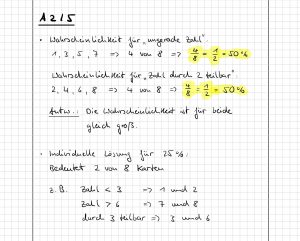 A 2 | 5
• Wahrscheinlichkeit für „ungerade Zahl":
1, 3, 5, 7 => 4 von 8 => 4/8 = 1/2 = 50%
Wahrscheinlichkeit für „Zahl durch 2 teilbar":
2, 4, 6, 8 => 4 von 8 => 4/8 = 1/2 = 50%
Antw.: Die Wahrscheinlichkeit ist für beide
gleich groß.
• Individuelle Lösung für 25%:
Bedeutet 2 von 8 Karten
z.B. Zahl < 3 => 1 und 2
Zahl > 6 => 7 und 8
durch 3 teilbar => 3 und 6